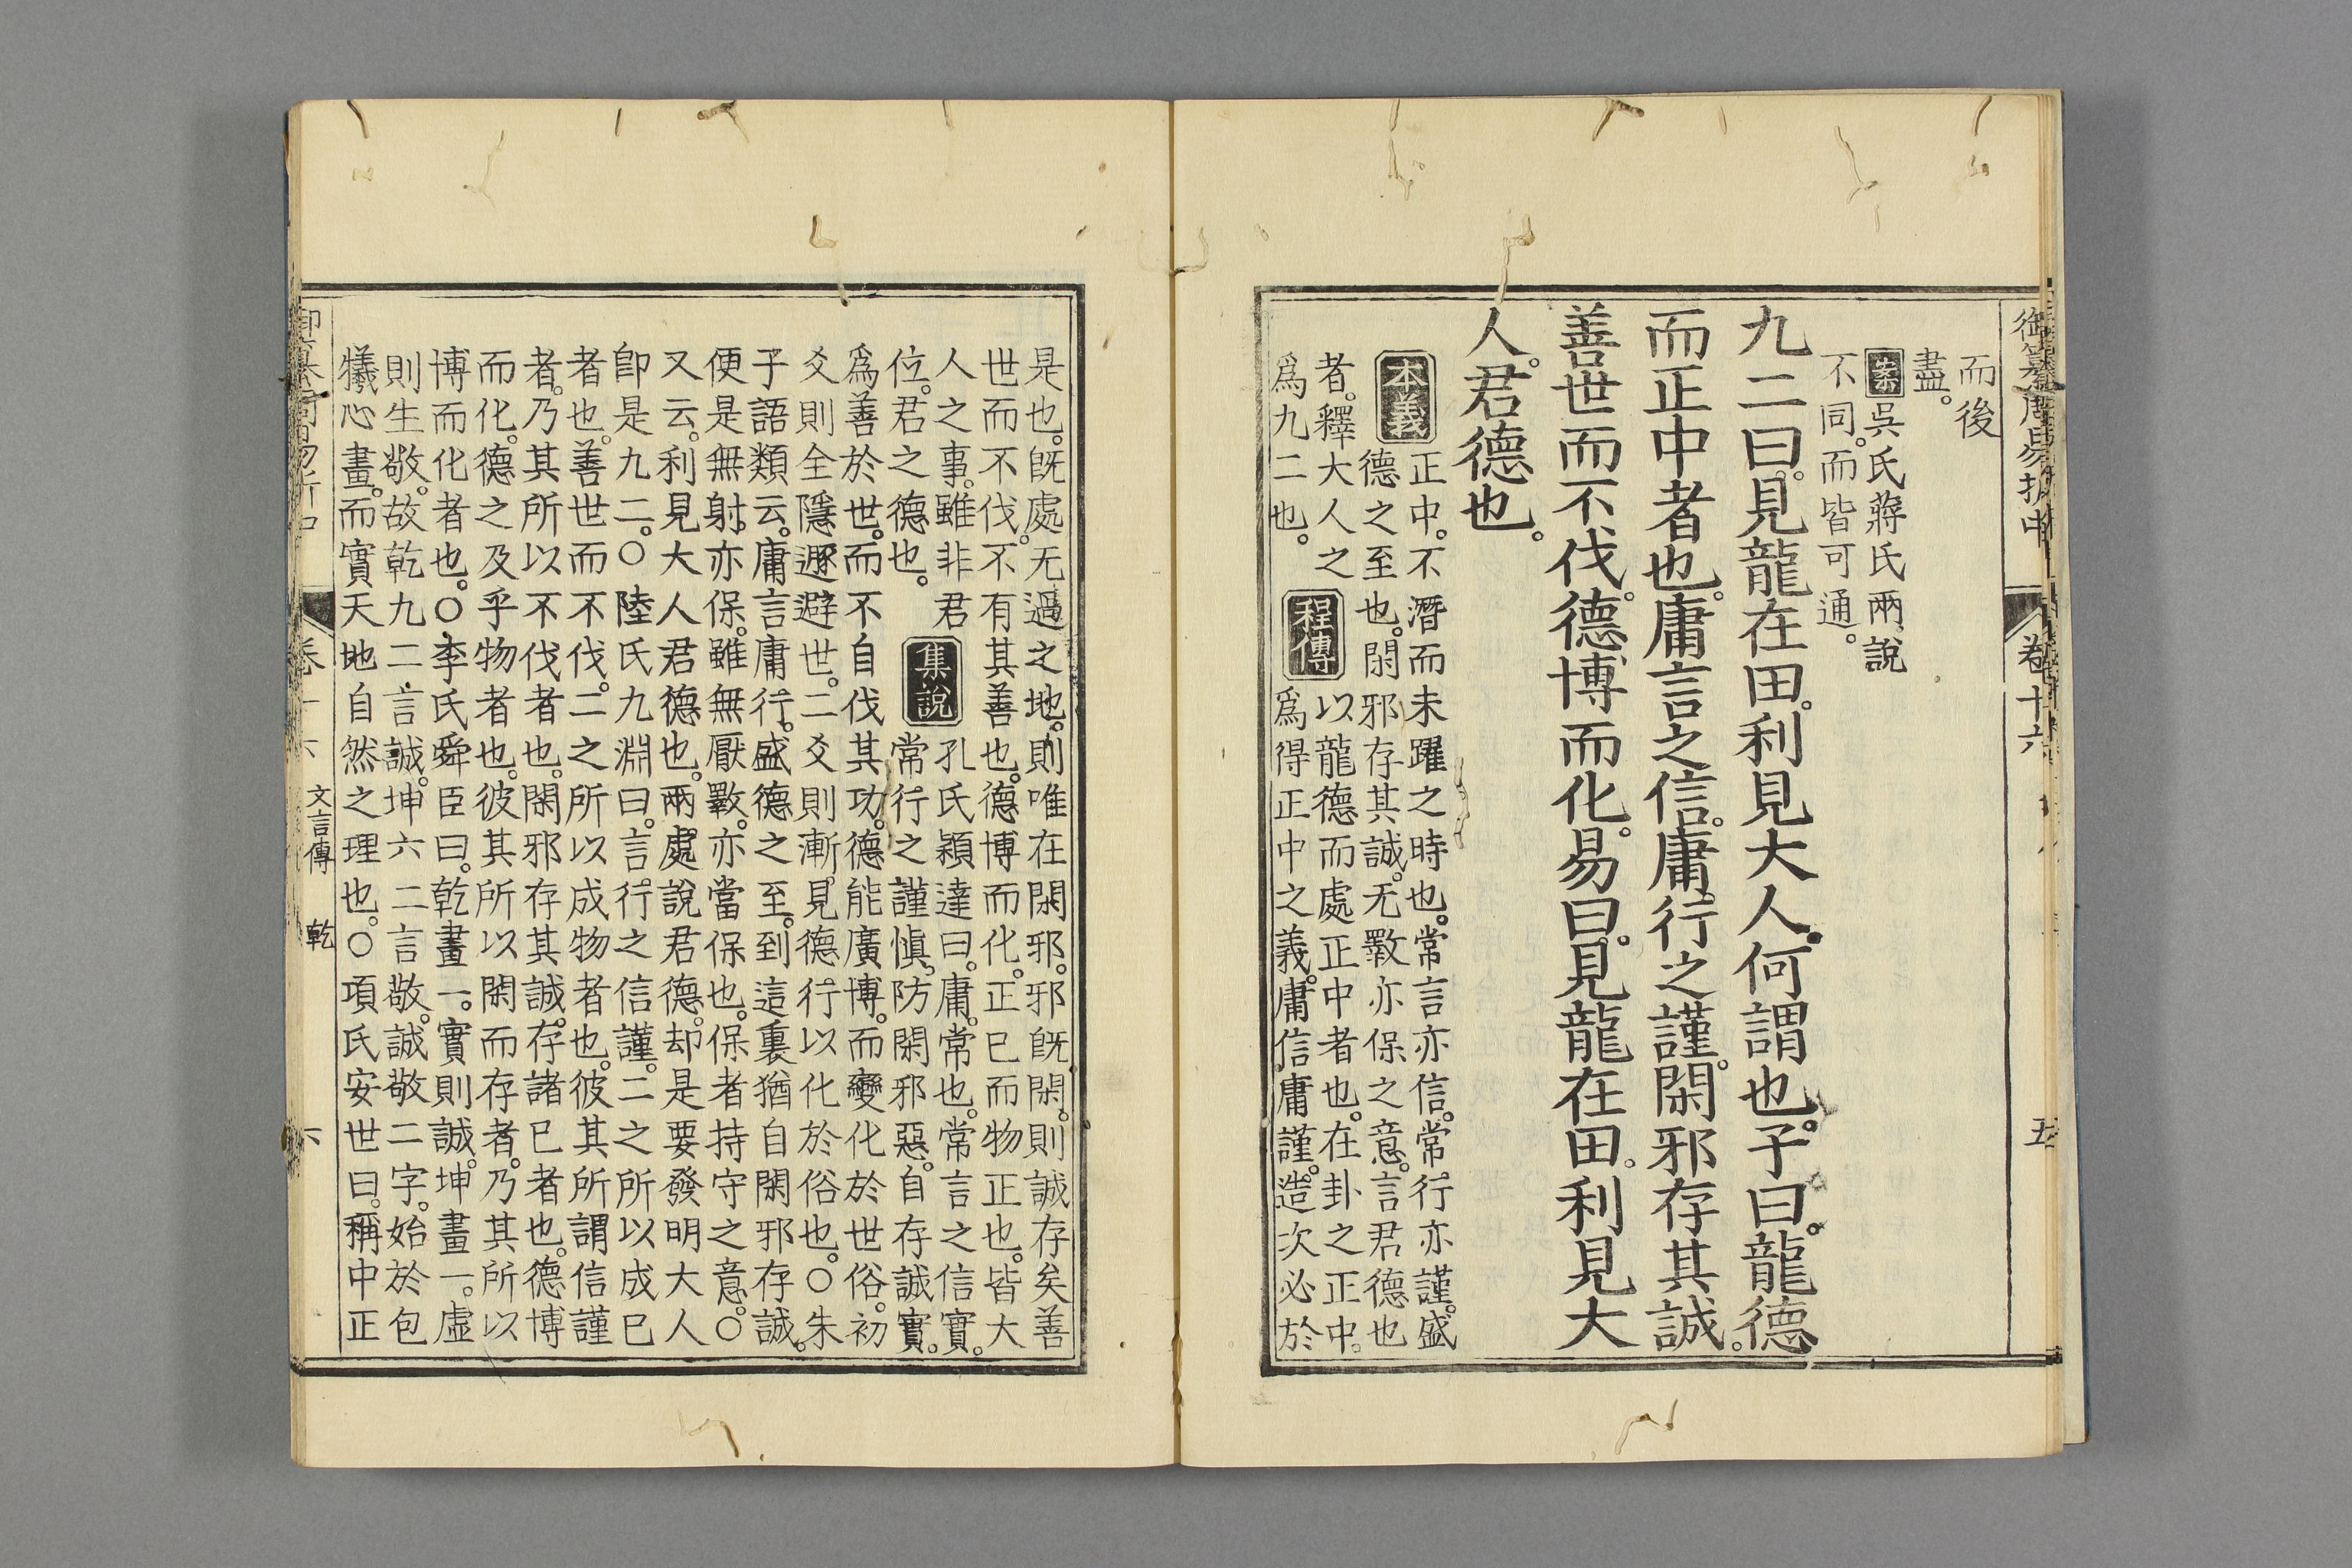 御纂周易折中 卷十六 五
而後
盡。
案 吳氏蔣氏兩說
不同。而皆可通。
九二曰。見龍在田。利見大人。何謂也。子曰。龍德
而正中者也。庸言之信。庸行之謹。閑邪存其誠。
善世而不伐。德博而化。易曰。見龍在田。利見大
人。君德也。
本義
正中。不潛而未躍之時也。常言亦信。常行亦謹。盛
德之至也。閑邪存其誠。无斁亦保之意。言君德也
者。釋大人之
爲九二也。
程傳
以龍德而處正中者也。在卦之正中。
爲得正中之義。庸信庸謹。造次必於
是也。旣處无過之地。則唯在閑邪。邪旣閑。則誠存矣善
世而不伐。不有其善也。德博而化。正已而物正也。皆大
人之事。雖非君
位。君之德也。
集說
孔氏穎達曰。庸。常也。常言之信實。
常行之謹愼。防閑邪惡。自存誠實。
爲善於世。而不自伐其功。德能廣博。而變化於世俗。初
爻則全隱遯避世。二爻則漸見德行以化於俗也。○朱
子語類云。庸言庸行。盛德之至。到這裏猶自閑邪存誠。
便是無射亦保。雖無厭斁。亦當保也。保者持守之意。○
又云。利見大人君德也。兩處說君德。却是要發明大人
卽是九二。○陸氏九淵曰。言行之信謹。二之所以成已
者也。善世而不伐。二之所以成物者也。彼其所謂信謹
者。乃其所以不伐者也。閑邪存其誠。存諸已者也。德博
而化。德之及乎物者也。彼其所以閑而存者。乃其所以
博而化者也。○李氏舜臣曰。乾畫一。實則誠。坤畫一。虛
則生敬。故乾九二言誠。坤六二言敬。誠敬二字。始於包
犧心畫。而實天地自然之理也。○項氏安世曰。稱中正
文言傳 乾